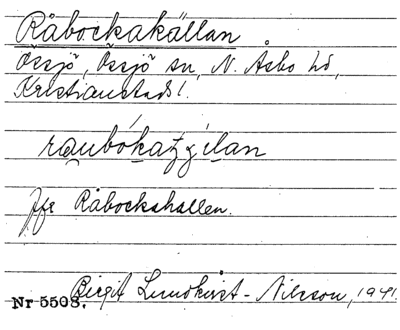 Råbockakällan
Össjö, Össjö sn, N. Åsbo hd,
Kristianstads l.
raubókatzílan
Jfr Råbockahallen.
Birgit Lundkvist-Nilsson, 1941.
Nr 5508.